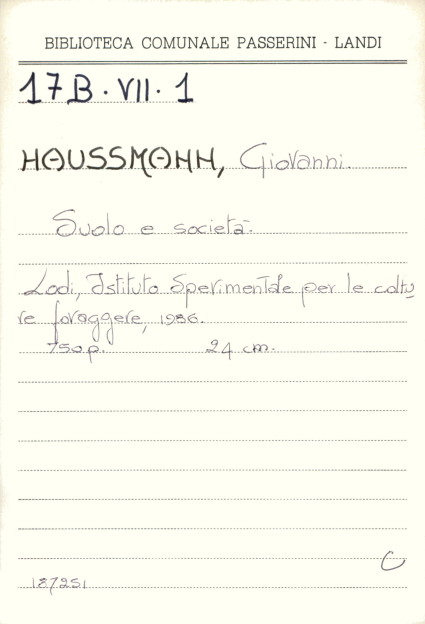 BIBLIOTECA COMUNALE PASSERINI - LANDI
17B. VII. 1
HAUSSMANN, Giovanni.
Suolo e società.
Lodi, Istituto Sperimentale per le coltu
re foraggere, 1986.
750 p. 24 cm.
C
187251